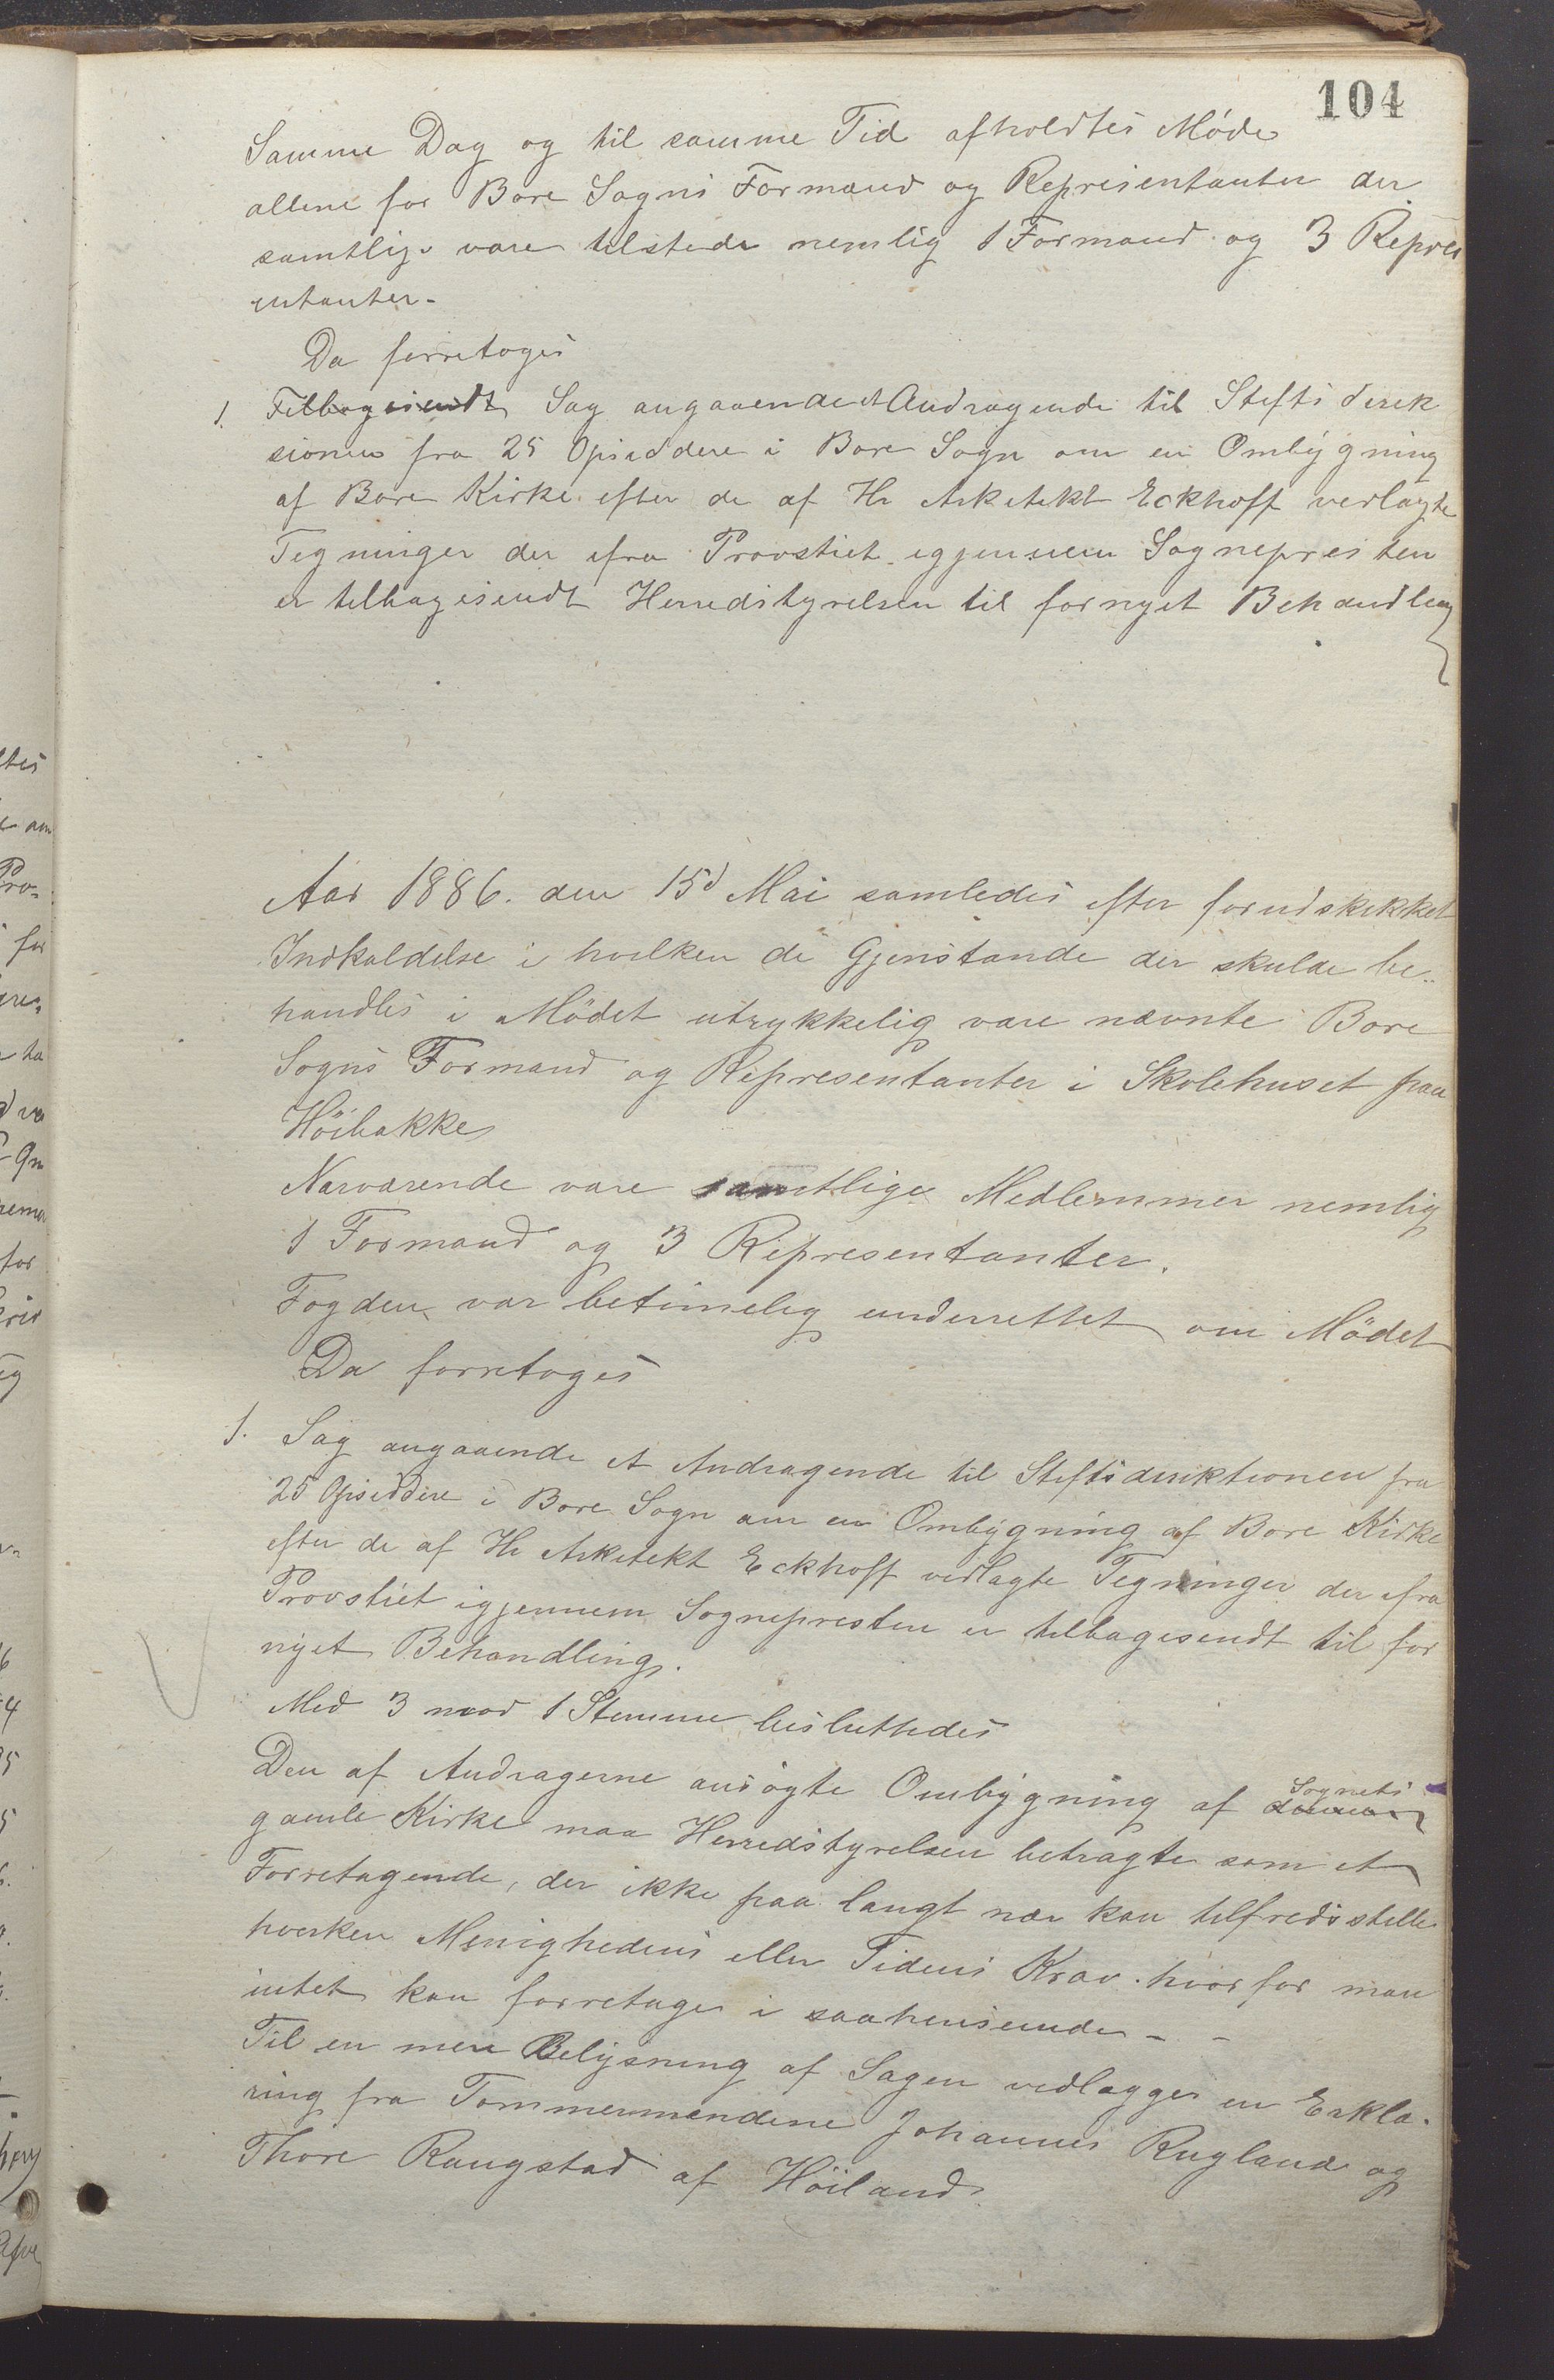 104
Samme Dag og til samme Tid afholdtes Möde
allene for Bore Sogns Formænd og Representanter der
samtlige vare tilstede nemlig 1 Formand og 3 Repres
entanter-
Da forretoges
1. Tilbagesendt Sag angaaende et Andragende til Stifts direk
sionen fra 25 Opsiddere i Bore Sogn om en Ombygning
af Bore Kirke efter de af Hr Arkitekt Eckhoff vedlagte
Tegninger der ifra Provstiet igjennem Sognepresten
er tilbagesendt Herredstyrelsen til fornyet Behandling
Aar 1886. den 15d Mai samledes efter forudskikket
Indkaldelse i hvilken de Gjenstande der skulde be-
handles i Mödet utrykkelig vare nævnte Bore
Sogns Formand og Representanter i Skolehuset paa
Höibakke
Nærværende vare samtlige Medlemmer nemlig
1 Formand og 3 Representanter.
Fogden var betimelig underrettet om Mödet
Da forretoges
1. Sag angaaende et Andragende til Stiftsdirektionen fra
25 Opsiddere i Bore Sogn om en Ombygning af Bore Kirke
efter de af Hr Arkitekt Eckhoff vedlagte Tegninger der ifra
Provstiet igjennem Sognepresten er tilbagesendt til for
nyet Behandling.
Med 3 mod 1 Stemme besluttedes
Den af Andragerne ansögte Ombygning af Sognets
gamle Kirke maa Herredstyrelsen betragte som et
Forretagende, der ikke paa langt nær kan tilfredsstille
hverken Menighedens eller Tidens Krav. hvorfor man
intet kan forretage i saahenseende - -
Til en mere Belysning af Sagen vedlægges en Erklæ-
ring fra Tømmermændene Johannes Rugland og
Thore Raugstad af Höiland.